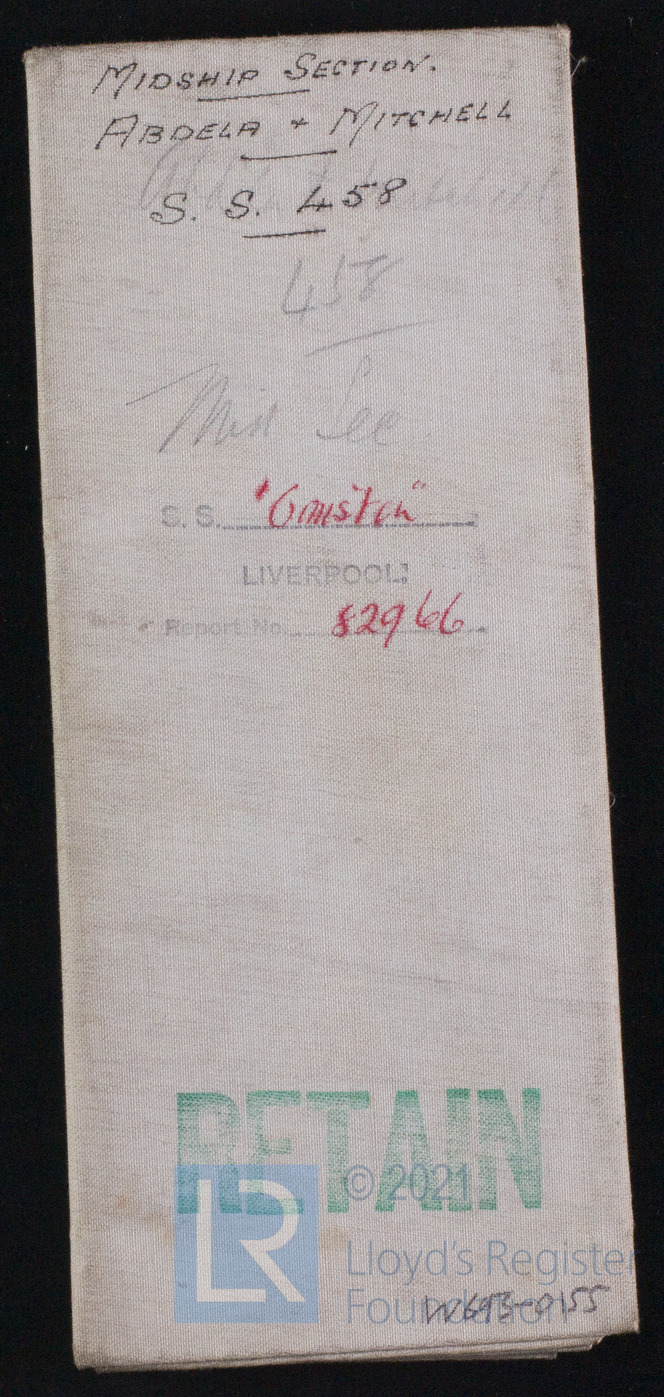 MIDSHIP SECTION.
ABDELA + MITCHELL
S. S. 458
458
Mid Sec
S. S.
LIVERPOOL
Report No. 82966
RETAIN
LR
© 2021
Lloyd's Register
Foundation
W693-0155